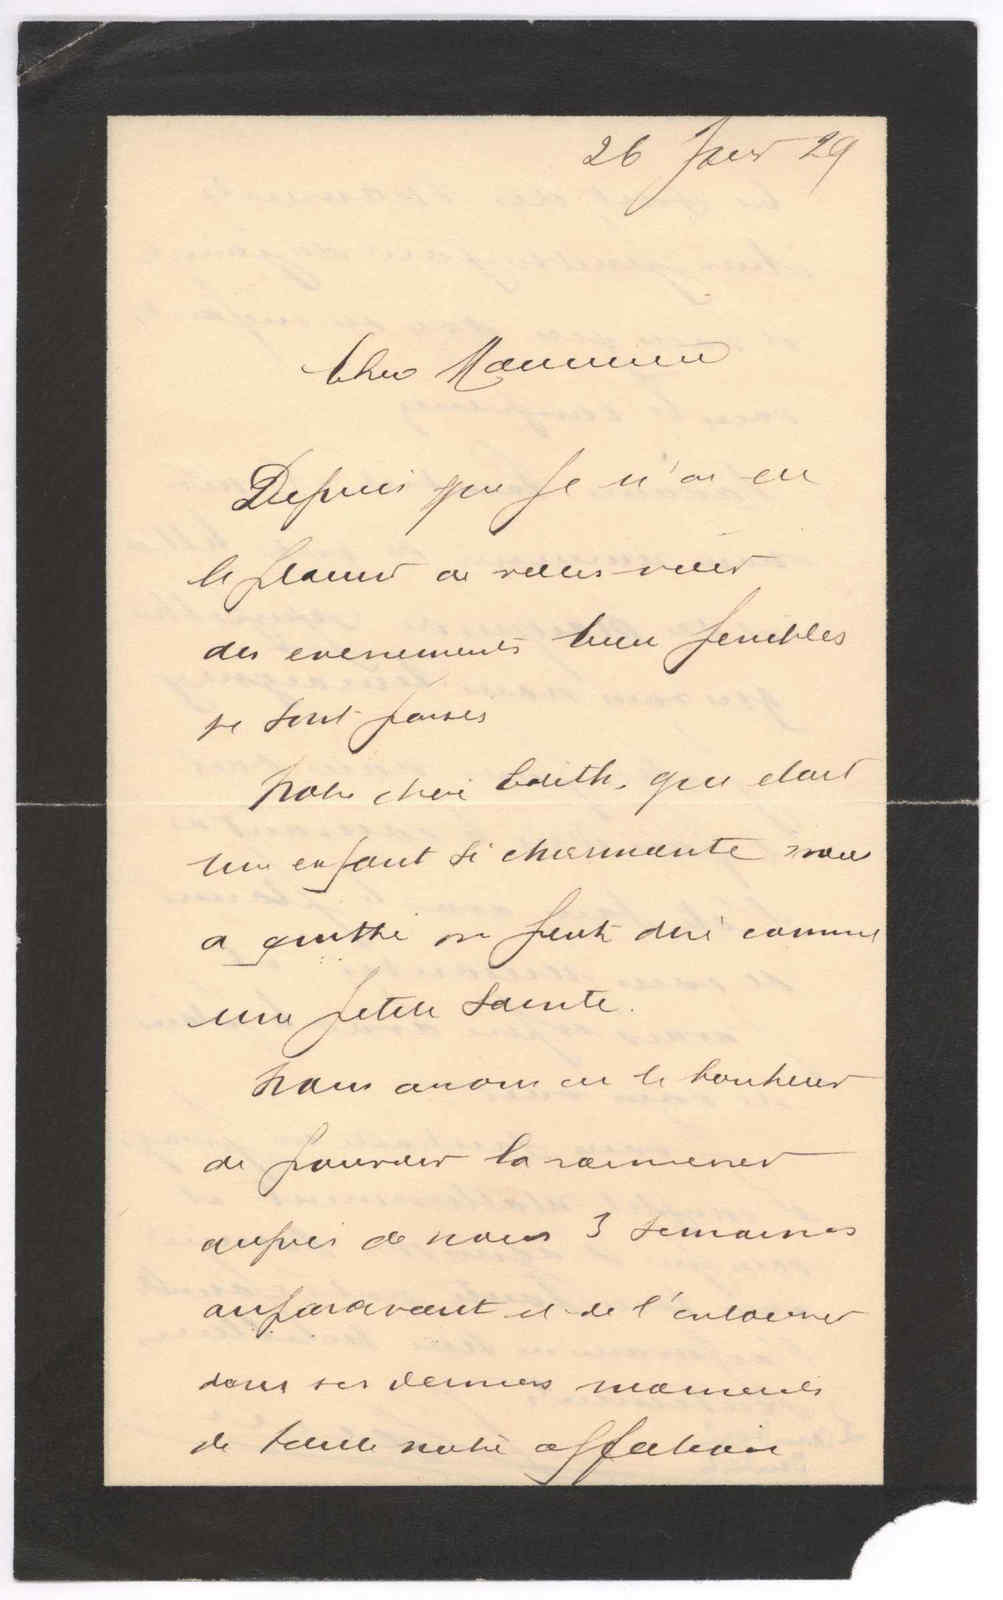 26 Janv 29
Cher Monsieur
Depuis que je n'ai eu
le plaisir de vous voir
des evenements bien penibles
se sont passés
Notre chère Edith, qui etait
une enfant si charmante nous
a quitté on peut dire comme
une petite Sainte.
Nous avons eu le bonheur
de pouvoir la ramener
auprès de nous 3 semaines
auparavant et de l'entourer
dans ses derniers moments
de toute notre affection